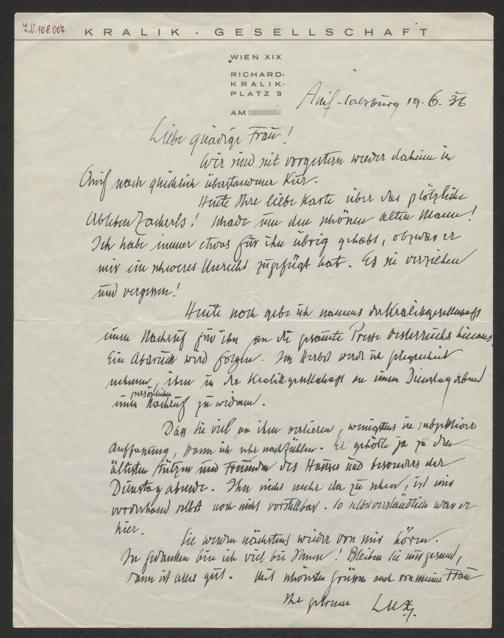 I.N. 108.007
KRALIK - GESELLSCHAFT
WIEN XIX
RICHARD-
KRALIK-
PLATZ 3
AM
Anif-Salzburg 19.6.36
Liebe gnädige Frau!
Wir sind seit vorgestern wieder daheim in
Anif nach glücklich überstandener Kur.
Heute Ihre liebe Karte über das plötzliche
Ableben Zacherls! Schade um den schönen alten Mann!
Ich habe immer etwas für ihn übrig gehabt, obzwar er
mir ein schweres Unrecht zugefügt hat. Es sei verziehen
und vergessen!
Heute noch gebe ich namens der Kralikgesellschaft
einen Nachruf für ihn an die gesamte Presse Oesterreichs hinaus,
Ein Abdruck wird folgen. Im Herbst werde ich Gelegenheit
nehmen, ihm in der Kralikgesellschaft an einem Dienstag abend
persönlichen
einen Nachruf zu widmen.
Daß Sie viel an ihm verlieren, wenigstens in subjektiver
Auffassung, kann ich sehr nachfühlen. Er gehörte ja zu den
ältesten Stützen und Freunden des Hauses und besonders der
Dienstag abende. Ihn nicht mehr da zu sehen, ist mir
vorderhand selbst noch nicht vorstellbar. So selbstverständlich war er
hier.
Sie werden nächstens wieder von mir hören.
In Gedanken bin ich viel bei Ihnen! Bleiben Sie nur gesund,
dann ist alles gut. Mit schönsten Grüssen auch von meiner Frau
Ihr getreuer Lux